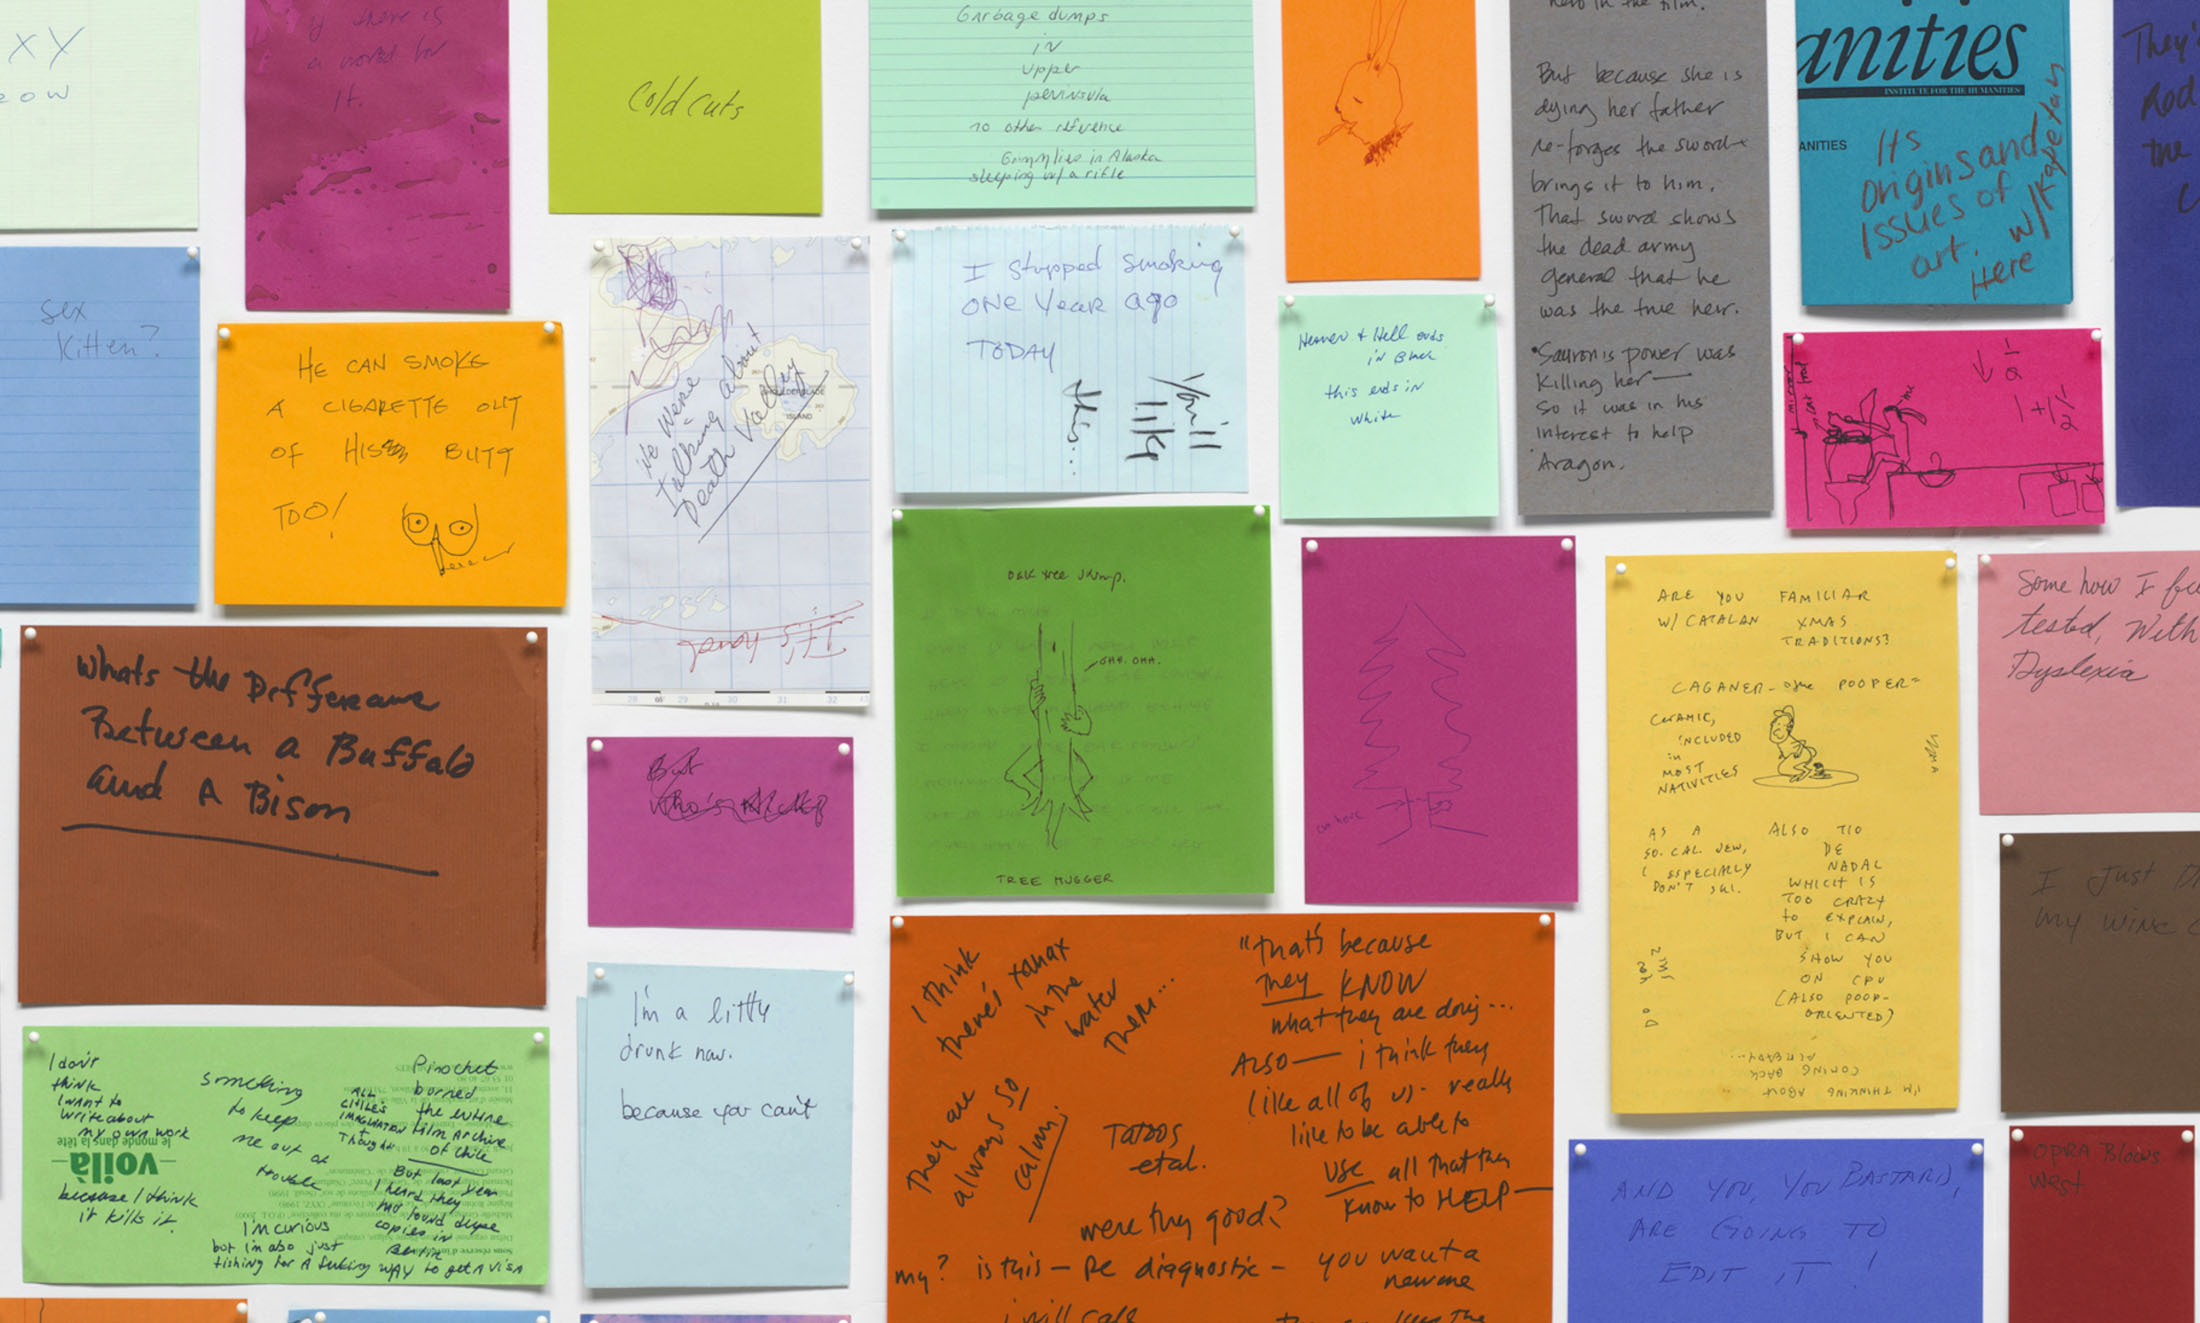 XY
eow
if there is
a word for
it.
Cold cuts
Garbage dumps
in
upper
peninsula
no other reference
Grizzlies in Alaska
sleeping w/ a rifle
hero in the film.
But because she is
dying her father
re-forges the sword +
brings it to him.
That sword shows
the dead army
general that he
was the true heir.
Sauron's power was
killing her—
so it was in his
interest to help
Aragon.
anities
INSTITUTE FOR THE HUMANITIES
ANITIES
Its
origins and
issues of
art. w/ Kapetan
Here
They'
Rod
the
sex
kitten?
HE CAN SMOKE
A CIGARETTE OUT
OF HIS BUTT
TOO!
We were
talking about
Death Valley
SHOULDERBLADE
ISLAND
It's here
28 29 30 31 32
I stopped smoking
ONE YEAR AGO
TODAY
You'll
like
this...
Heaven & Hell ends
in Black
this ends in
white
mirror
me
1/2
1+1 1/2
Whats the Difference
Between a Buffalo
and A Bison
But
who's
oak tree stump.
OHH. OHH.
TREE HUGGER
ARE YOU FAMILIAR
W/ CATALAN XMAS
TRADITIONS?
CAGANER - the POOPER =
CERAMIC,
INCLUDED
in
MOST
NATIVITIES
AS A
SO. CAL JEW,
I ESPECIALLY
DON'T SKI.
ALSO TIO
DE
NADAL
WHICH IS
TOO CRAZY
to EXPLAIN,
BUT I CAN
SHOW YOU
ON CPU
(ALSO POOP-
ORIENTED)
I'M THINKING ABOUT
COMING BACK
ALREADY...
Some how I fe
tested, With
Dyslexia
I just D
my wine
I don't
think
I want to
write about
my own work
le monde dans la tête
voilà
because I think
it kills it.
something
to keep
me out of
trouble
ALL
CHILE'S
IMAGINATION
+
THOUGHT
Pinochet
burned
the entire
film archive
of Chile
But last year
I heard they
found
copies in
Berlin
I'm curious
but I'm also just
fishing for A fucking WAY to get A visa
I'm a litty
drunk now.
because you can't
I think
there's xanax
in the
water
there...
They are
always so
calm;
"that's because
they KNOW
what they are doing...
ALSO— i think they
(like all of us- really
like to be able to
use all that they
know to HELP—
Tatoos
etal.
were they good?
my? is this - pe diagnostic - you want a
new one
i will call
OPRA Blows
West
AND YOU, YOU BASTARD,
ARE GOING TO
EDIT IT!